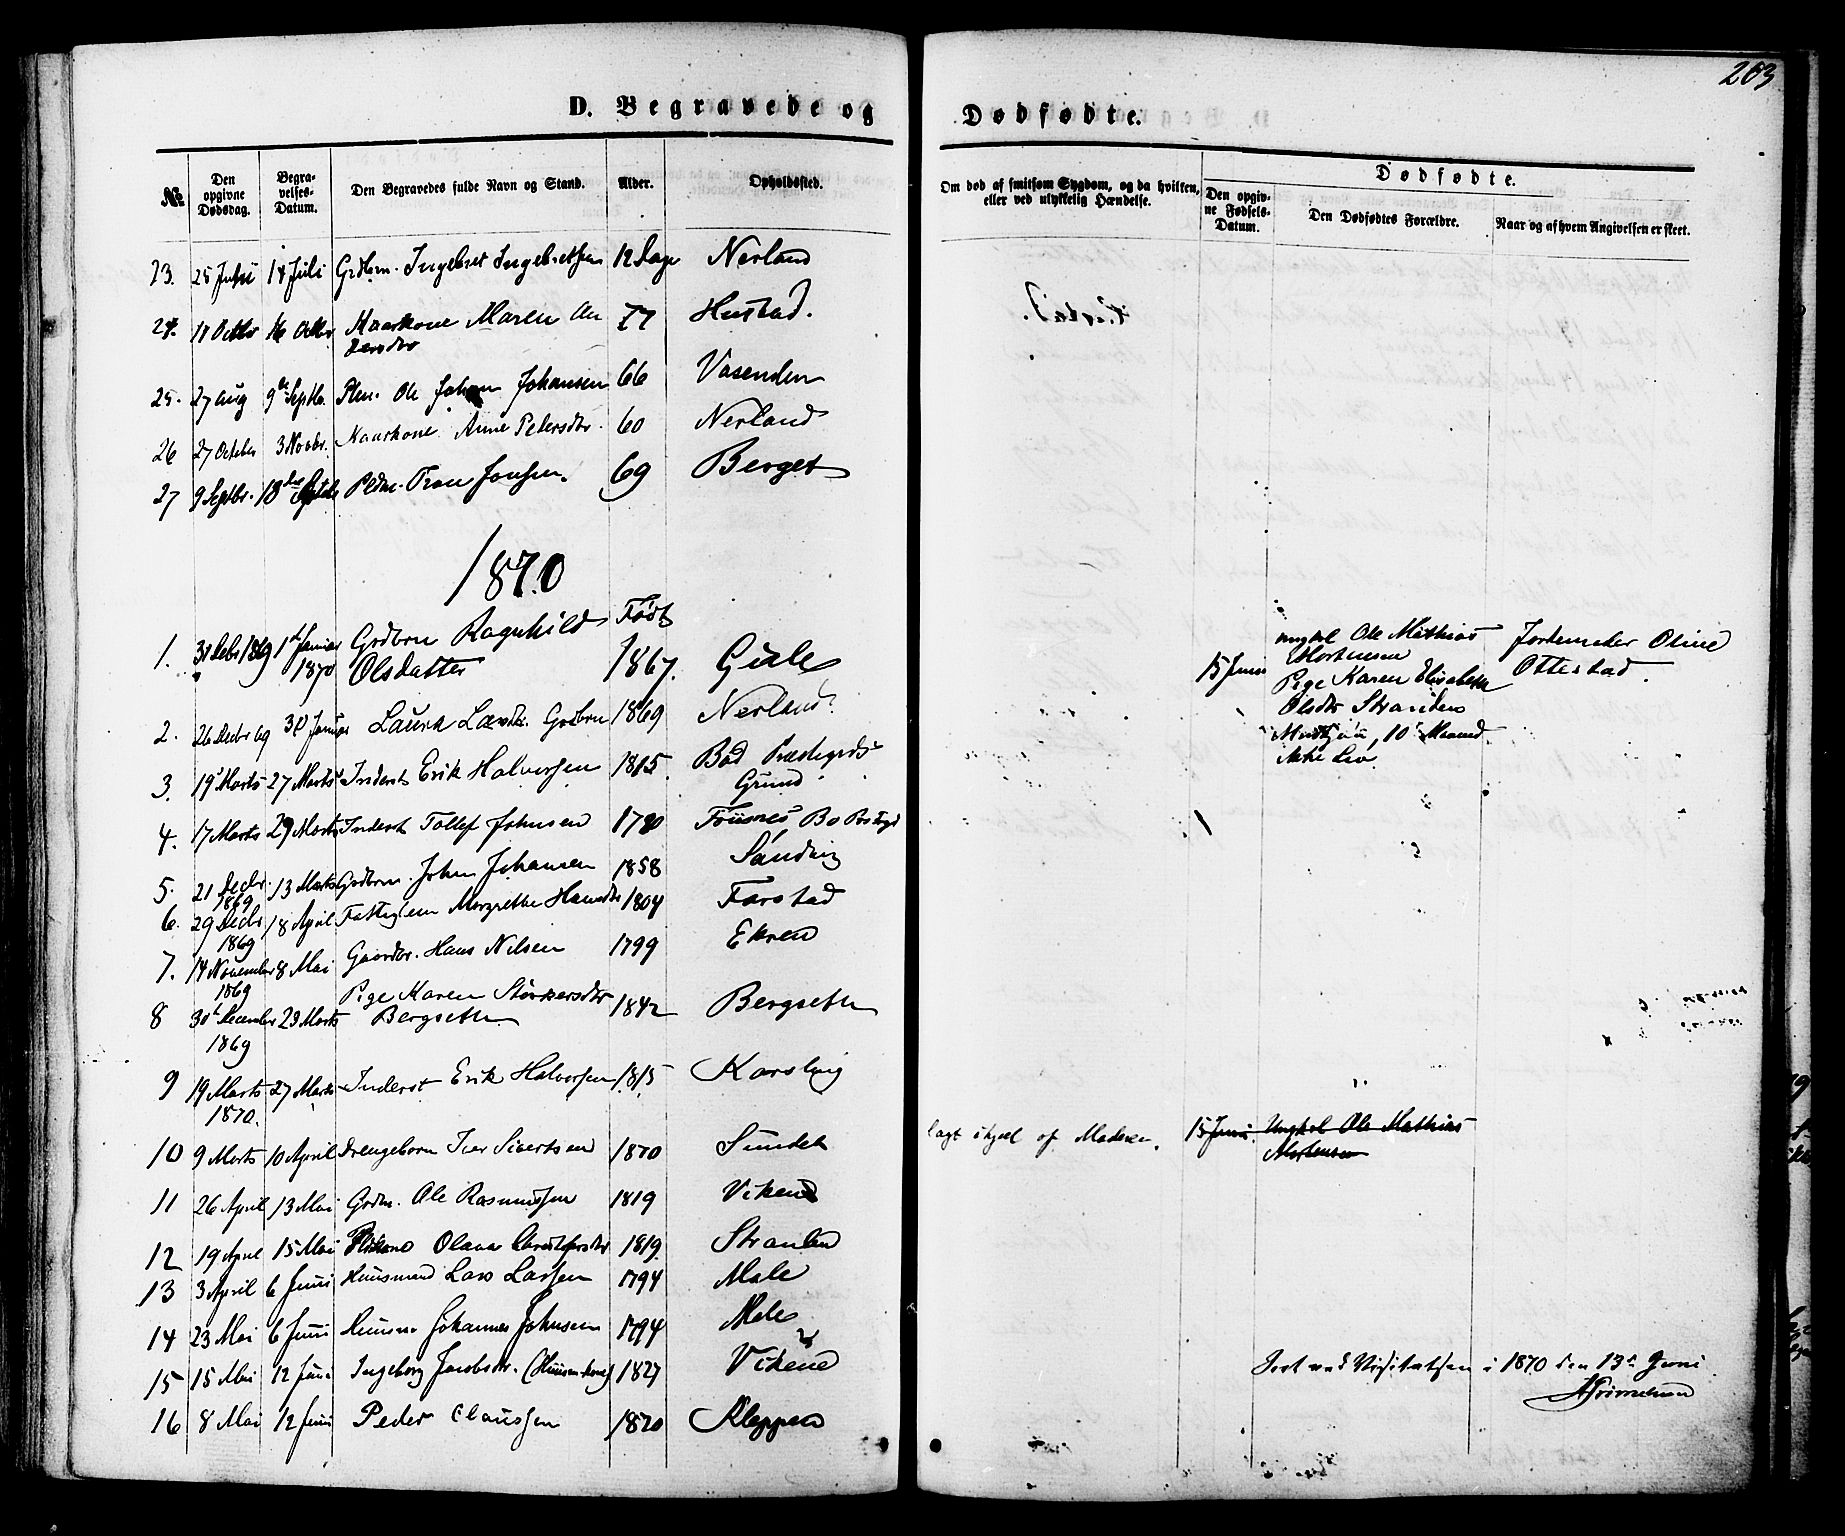 203
D. Begravede og Dødfødte.
№ Den opgivne Dødsdag. Begravelses-Datum. Den Begravedes fulde Navn og Stand. Alder. Opholdssted. Om død af smitsom Sygdom, og da hvilken, eller ved ulykkelig Hændelse. Den opgivne Fødsels-Datum. Dødfødte. Den Dødfødtes Forældre. Naar og af hvem Angivelsen er skeet.
23. 25 Juni 14 Juli Gdbrn. Ingebret Ingebretsen 12 Dage Nerland
24. 11 Octbr 16 Octbr Kaarkone Maren An 77 Hustad.
dersdtr
25. 27 Aug 9de Septbr. Plm. Ole Johan Johansen 66 Vasenden
26 27 October 3 Novbr. Kaarkone Anne Petersdtr. 60 Nerland
27 9 Septbr. 18de Pldm. Tron Jonsen. 69 Berget
1870
1. 31 Decbr 1869 1ste Januar 1870 Grdbrn Ragnhild Olsdatter Født 1867. Gule
2. 26 Decbr 69 30 Januar Laura Larsdtr. Grdbrn 1869 Nerland.
3. 19 Marts 27 Marts Inderst Erik Halvorsen 1815. Bød Præstegrds Grund
4. 17 Marts 29 Marts Inderst Tollef Johnsen 1780
5. 21 Decbr. 1869 13 Marts Grdbrn. John Johansen 1858 Sandvig
6. 29 Decbr 1869 18 April Fattiglem Margrethe Hansdtr 1804 Farstad
7. 14 November 1869 8 Mai Gaardbr. Hans Nilsen 1799 Ekren
8 30t December 1869 29 Marts Pige Karen Størkersdtr Bergseth 1842 Bergseth
9 19 Marts 1870. 27 Marts Inderst Erik Halvorsen 1815 Karsling
10 9 Marts 10 April Drengebarn Iver Sivertsen 1870 Sundet
11 26 April 13 Mai Grdm. Ole Rasmussen 1819 Vikene
12 19 April 15 Mai Olava Christophersdtr 1819. Stranden
13 3 April 6 Juni Huusmand Lars Larsen 1794 Male
14 23 Mai 6 Juni Huusm. Johannes Johnsen 1794 Male
15 15 Mai 12 Juni Ingeborg Jacobsdtr. (Huusm.kone) 1827 Vikene
16 8 Mai 12 Juni Peder Claussen 1820 Kleppen
15 Juni ungkrl Ole Mathias Jordemoder Oline
Mortensen Ottestad.
Pige Karen Elisabeth
Olsdtr Stranden
10 Maaned
ikke Liv.
lagt ihjel af Moderen. 15 Juni. Ungkrl Ole Mathias
Mortensen
Seet ved Visitatsen i 1870 den 13de Juni